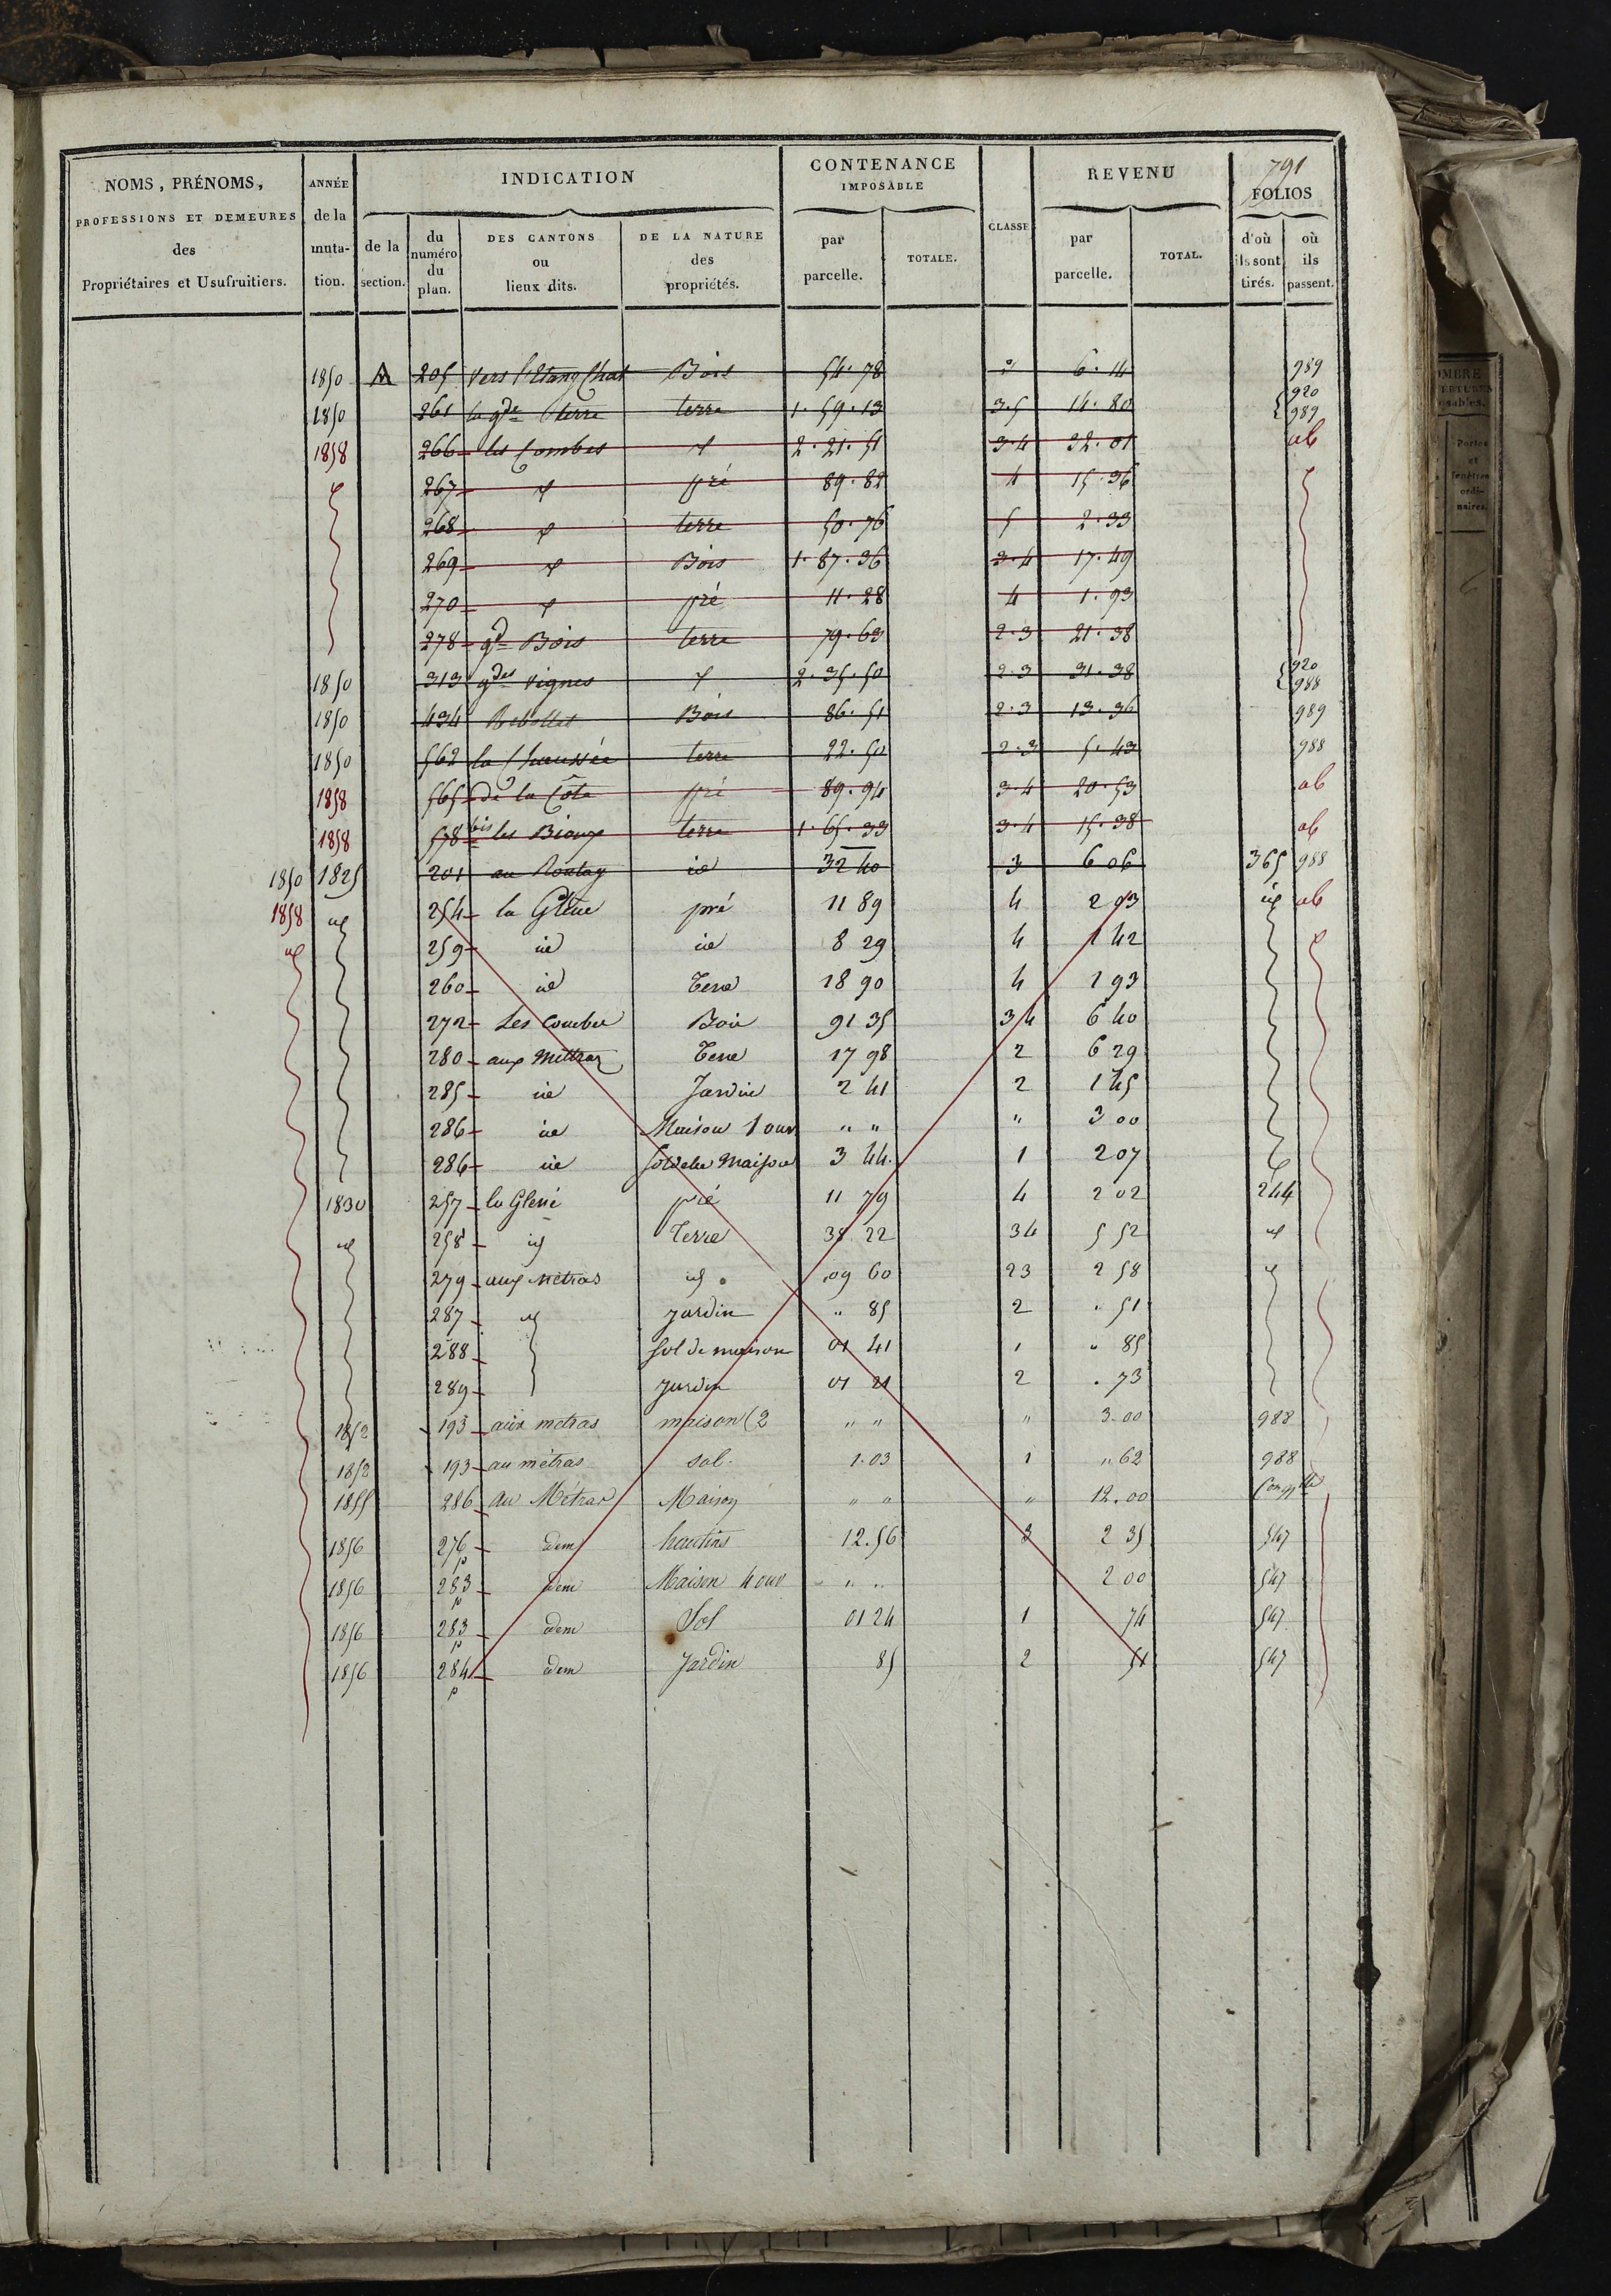 791
NOMS, PRÉNOMS,
PROFESSIONS ET DEMEURES
des
Propriétaires et Usufruitiers.
ANNÉE
de la
muta-
tion.
INDICATION
de la
section.
du
numéro
du
plan.
DES CANTONS
ou
lieux dits.
DE LA NATURE
des
propriétés.
CONTENANCE
IMPOSABLE
par
parcelle.
TOTALE.
CLASSE
REVENU
par
parcelle.
TOTAL.
FOLIOS
d'où
ils sont
tirés.
où
ils
passent.
1850 A 205 vers l'Etang Chat Bois 54.78 6.14 989
1850 261 la gde terre terre 1.59.13 3.5 14.80 920 989
1858 266 les Combes 2.21.51 3.4 32.01 ab
267 pré 89.82 4 15.36
268 terre 50.76 5 2.33
269 Bois 1.87.36 3.4 17.49
270 pré 11.28 4 1.93
278 gd Bois terre 79.63 2.3 21.38
1850 313 gdes vignes 2.35.50 2.3 31.38 920 988
1850 434 Bois 86.51 2.3 13.36 989
1850 562 la Chaussée terre 22.50 2.3 5.43 988
1858 565 de la Côte pré 89.94 3.4 20.53 ab
1858 578 bis les Bioux terre 1.65.33 3.4 15.38 ab
1850 1825 201 au id 32 40 3 6 06 365 988
1858 id 254 la Glene pré 11 89 4 2 03 id ab
id 259 id id 8 29 4 1 42
260 id Terre 18 90 4 1 93
272 Les Combes Bois 91 35 3 4 6 40
280 aux Mettraz Terre 17 98 2 6 29
285 id Jardin 2 41 2 1 45
286 id Maison 1 ouv " " " 3 00
286 id sol de la Maison 3 44 1 2 07
1830 257 la Glené pré 11 79 4 2 02 244
id 258 id Terre 38 22 3 4 5 52 id
279 aux métras id 09 60 2 3 2 58 id
287 id jardin " 85 2 " 51
288 sol de maison 01 41 1 " 85
289 jardin 01 21 2 . 73
1852 193 aux metras maison (2 " " " 3.00 988
1852 193 au métras sol. 1.03 1 " 62 988
1855 286 au Métras Maison " " " 12.00
1856 276 p idem hautins 12.56 3 2 35 547
1856 283 p idem Maison 4 ouv " " 2 00 547
1856 283 p idem Sol 01 24 1 74 547
1856 284 p idem Jardin 85 2 51 547